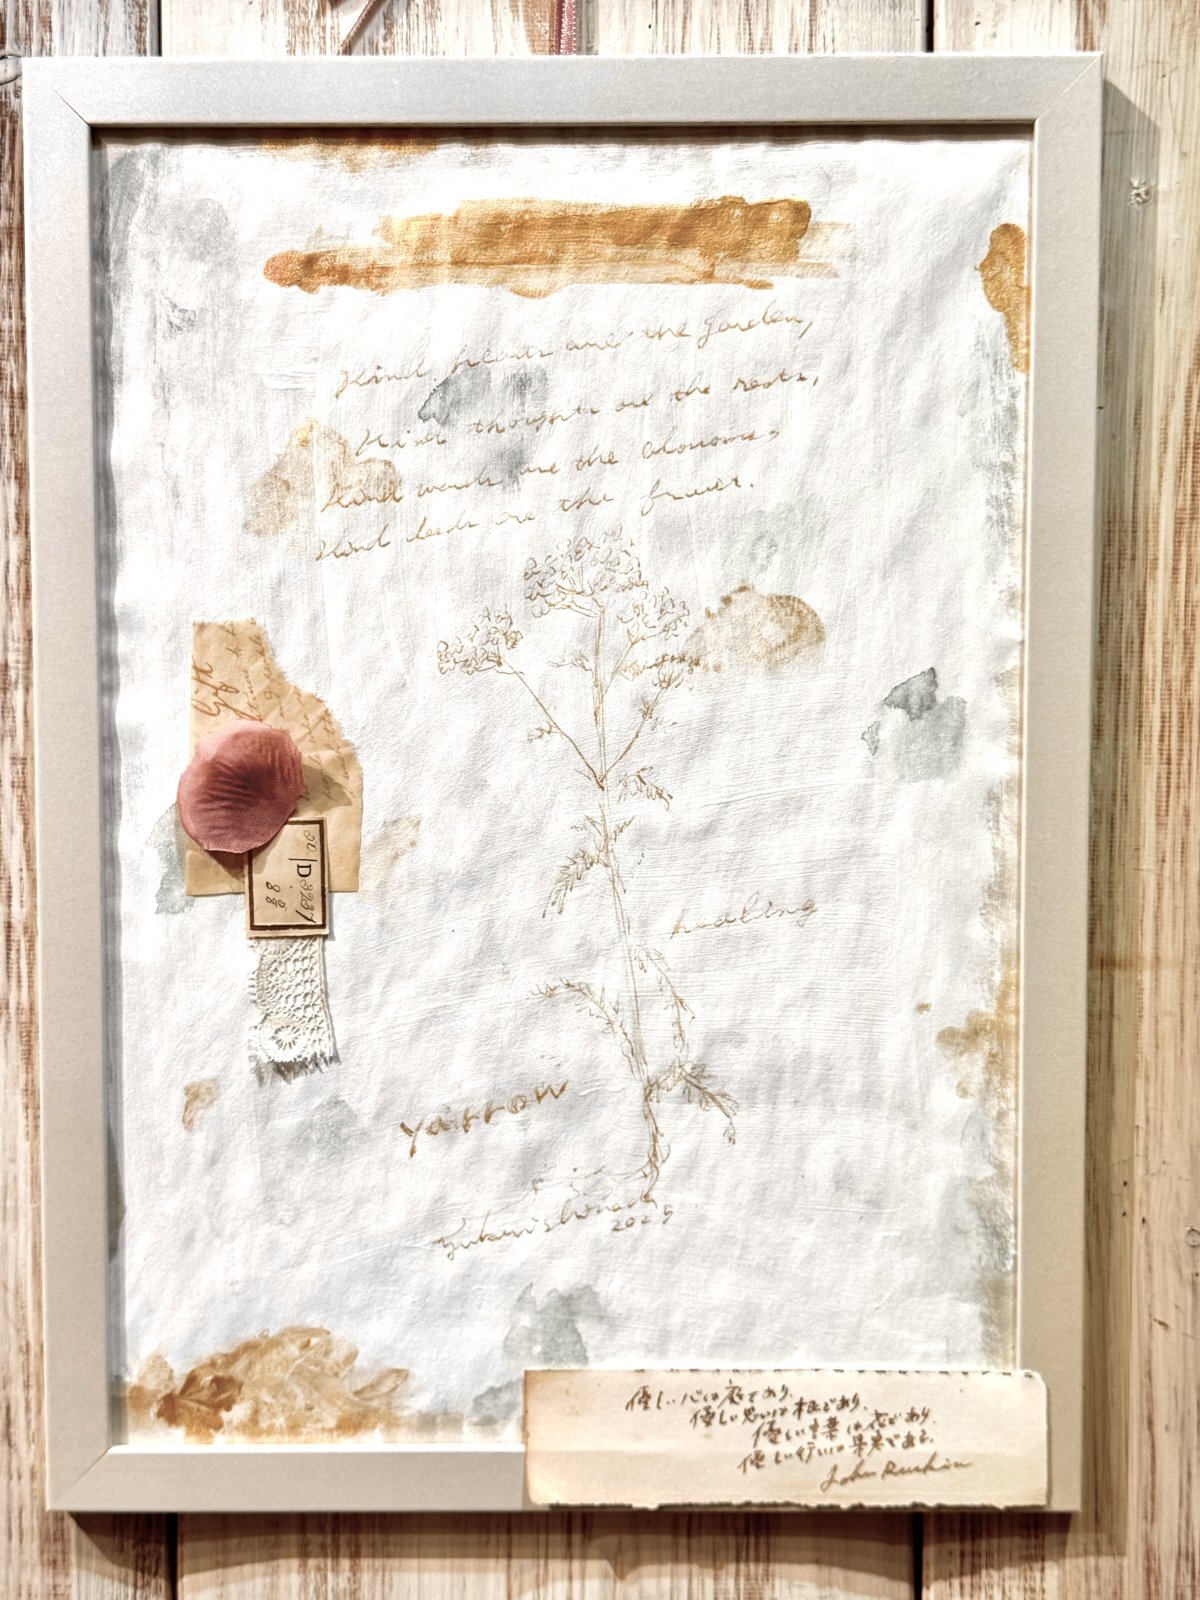 Kind hearts are the garden,
Kind thoughts are the roots,
Kind words are the blossoms,
Kind deeds are the fruits.
Gift
D 3287
88
healing
yarrow
2025
優しい心は庭であり、
優しい思いは根であり、
優しい言葉は花であり、
優しい行いは果実である。
John Ruskin